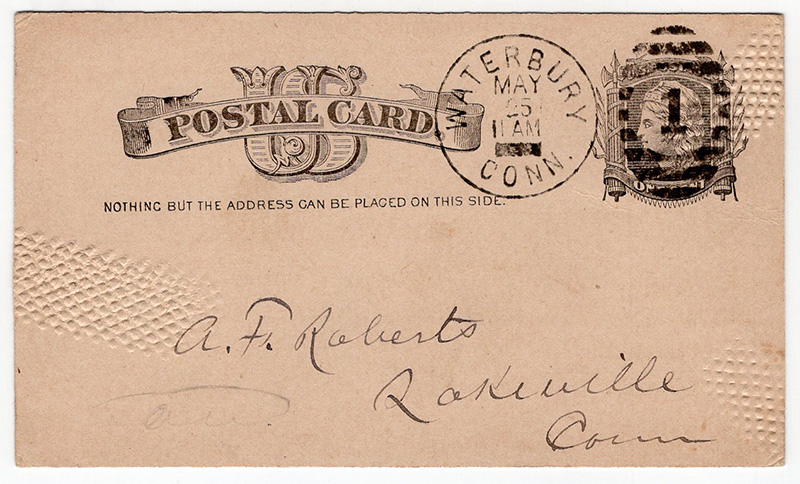 US
POSTAL CARD
NOTHING BUT THE ADDRESS CAN BE PLACED ON THIS SIDE.
WATERBURY
MAY
25
11 AM
CONN.
1
A. F. Roberts
Lakeville
Conn